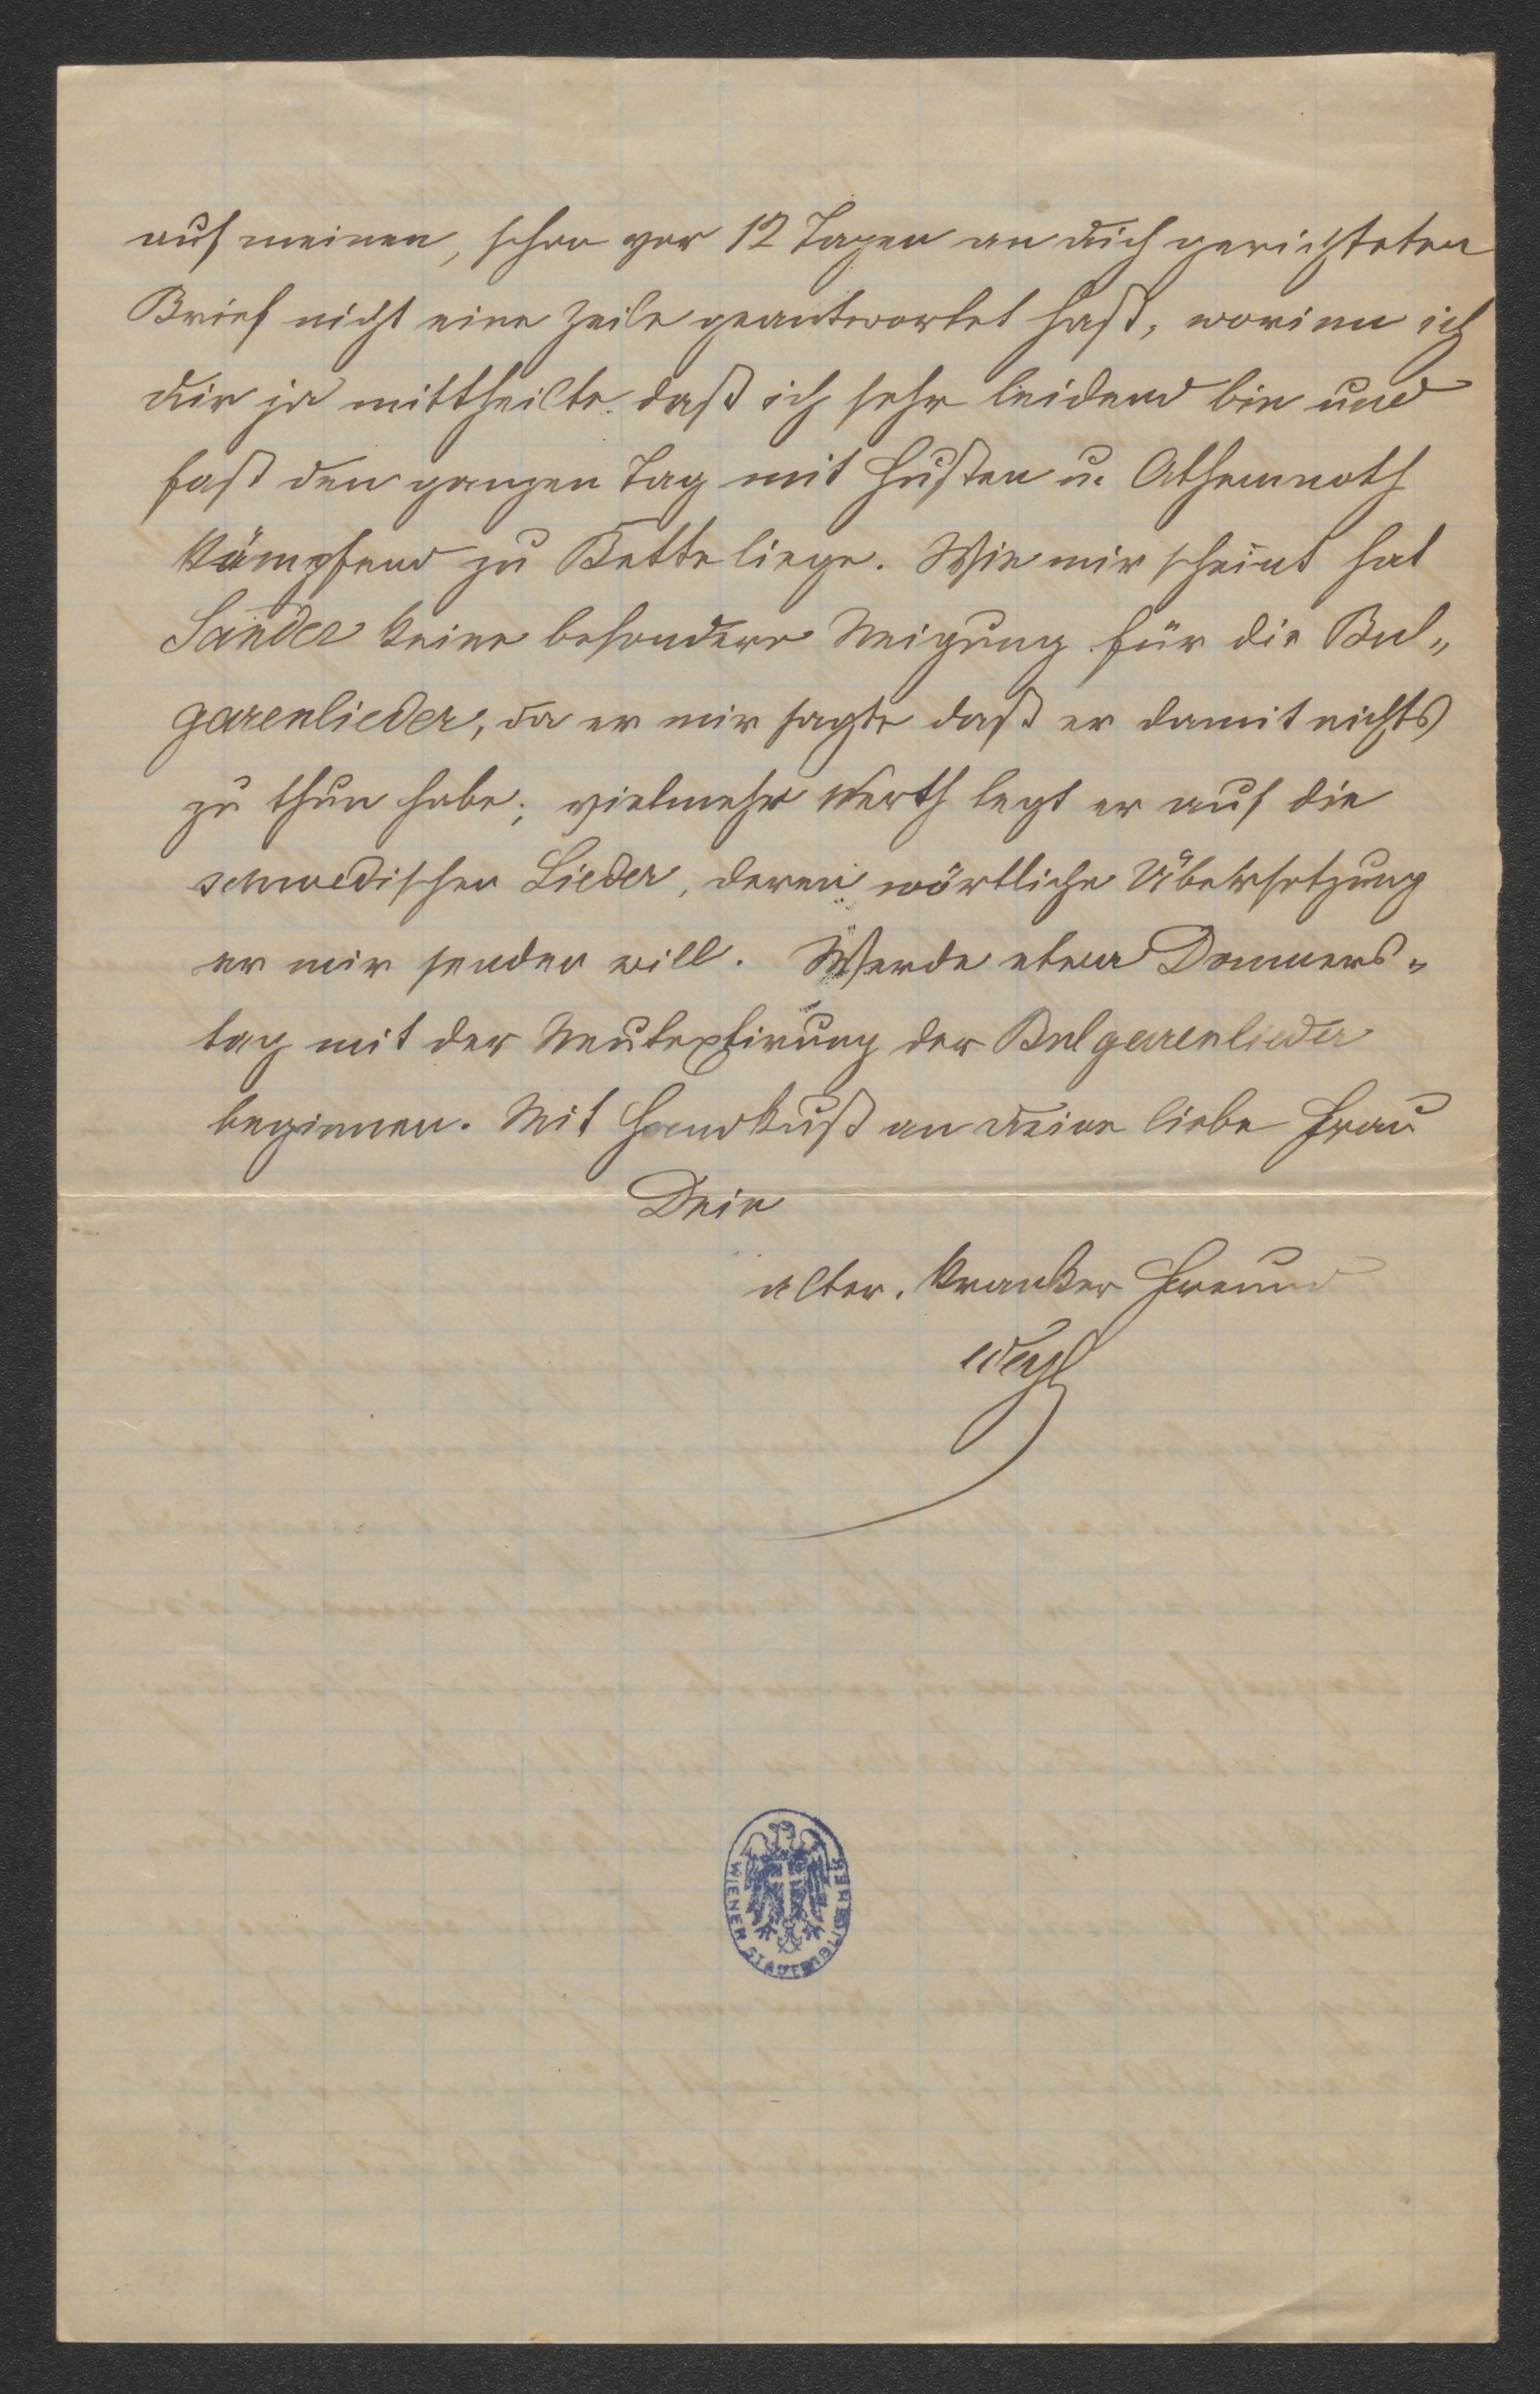 auf meinen, schon vor 12 Tagen an dich gerichteten
Brief nicht eine Zeile geantwortet hast, worinn ich
dir ja mittheilte daß ich sehr leidend bin und
fast den ganzen Tag mit Husten u. Athemnoth
kämpfend zu Bette liege. Wie mir scheint hat
Sander keine besondere Neigung für die Bul„
garenlieder, da er mir sagte daß er damit nichts
zu thun habe; vielmehr Werth legt er auf die
schwedischen Lieder, deren wörtliche Übersetzung
er mir senden will. Werde etwa Donners„
tag mit der Neutextirung der Bulgarenlieder
beginnen. Mit Handkuß an deine liebe Frau
Dein
alter, kranker Freund
Weyl
WIENER STADTBIBLIOTHEK